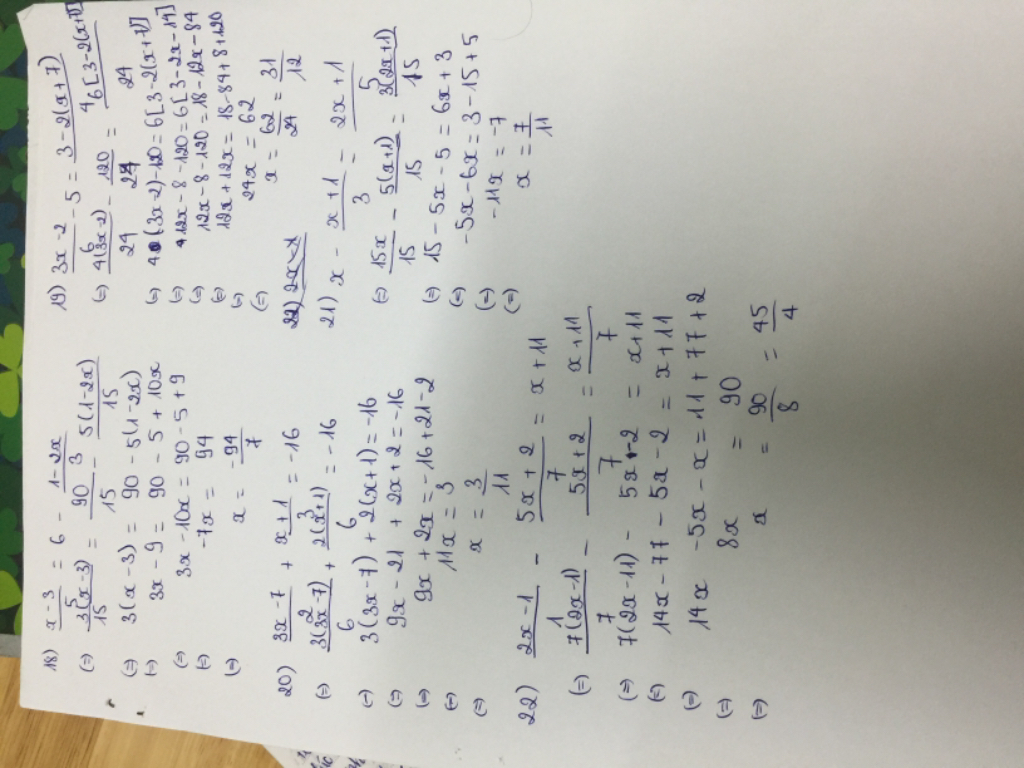 18) x-3/5 = 6 - 1-2x/3
(=) 3(x-3)/15 = 90/15 - 5(1-2x)/15
(=) 3(x-3) = 90 - 5(1-2x)
(=) 3x - 9 = 90 - 5 + 10x
(=) 3x - 10x = 90 - 5 + 9
(=) -7x = 94
(=) x = -94/7
20) 3x-7/2 + x+1/3 = -16
(=) 3(3x-7)/6 + 2(x+1)/6 = -16
(=) 3(3x-7) + 2(x+1) = -16
(=) 9x - 21 + 2x + 2 = -16
(=) 9x + 2x = -16 + 21 - 2
(=) 11x = 3
(=) x = 3/11
22) 2x-1/1 - 5x+2/7 = x+11
(=) 7(2x-1)/7 - 5x+2/7 = x+11/7
(=) 7(2x-11) - 5x+2 = x+11
(=) 14x - 77 - 5x - 2 = x + 11
(=) 14x - 5x - x = 11 + 77 + 2
(=) 8x = 90
(=) x = 90/8 = 45/4
19) 3x-2/6 - 5 = 3-2(x+7)/4
(=) 4(3x-2)/24 - 120/24 = 6[3-2(x+7)]/24
(=) 4(3x-2)-120 = 6[3-2(x+7)]
(=) 12x-8-120 = 6[3-2x-14]
(=) 12x-8-120 = 18-12x-84
(=) 12x+12x = 18-84+8+120
(=) 24x = 62
(=) x = 62/24 = 31/12
22) 2x-1
21) x - x+1/3 = 2x+1/5
(=) 15x/15 - 5(x+1)/15 = 3(2x+1)/15
(=) 15 - 5x - 5 = 6x + 3
(=) -5x - 6x = 3 - 15 + 5
(=) -11x = -7
(=) x = 7/11